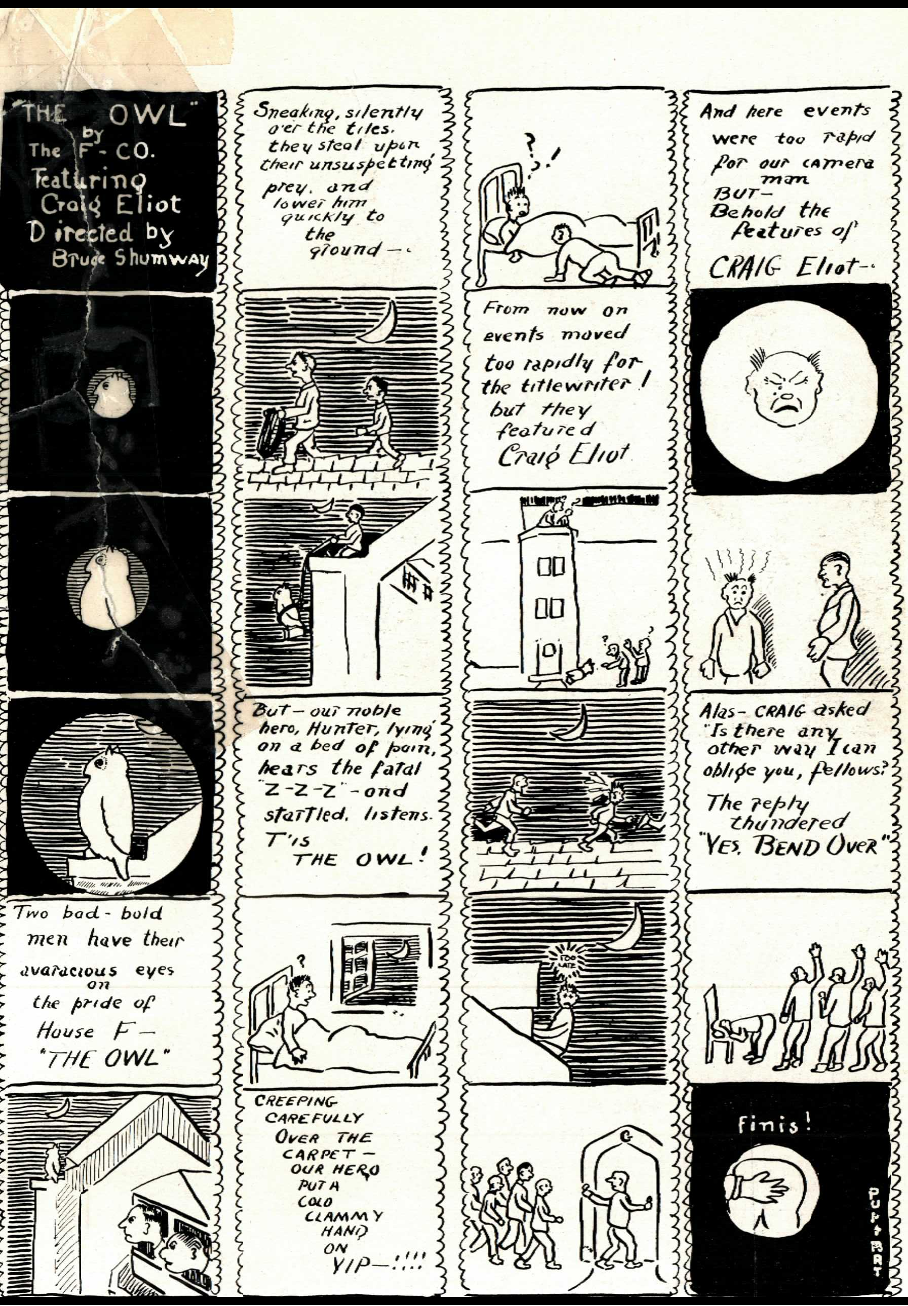 "THE OWL"
by
The F - CO.
Featuring
Craig Eliot
Directed by
Bruce Shumway
Two bad - bold
men have their
avaracious eyes
on
the pride of
House F —
"THE OWL"
Sneaking, silently
o'er the tiles,
they steal upon
their unsuspetting
prey, and
lower him
quickly to
the
ground —
But — our noble
hero, Hunter, lying
on a bed of pain,
hears the fatal
"Z-Z-Z" - and
startled, listens.
T'is
THE OWL!
?
CREEPING
CAREFULLY
OVER THE
CARPET —
OUR HERO
PUT A
COLD
CLAMMY
HAND
ON
YIP—!!!!
? . !
From now on
events moved
too rapidly for
the titlewriter!
but they
featured
Craig Eliot.
? ?
TOO
LATE
C
And here events
were too rapid
for our camera
man
BUT—
Behold the
features of
CRAIG Eliot—
Alas— CRAIG asked
"Is there any
other way I can
oblige you, fellows?"
The reply
thundered
"YES, BEND OVER"
Finis!